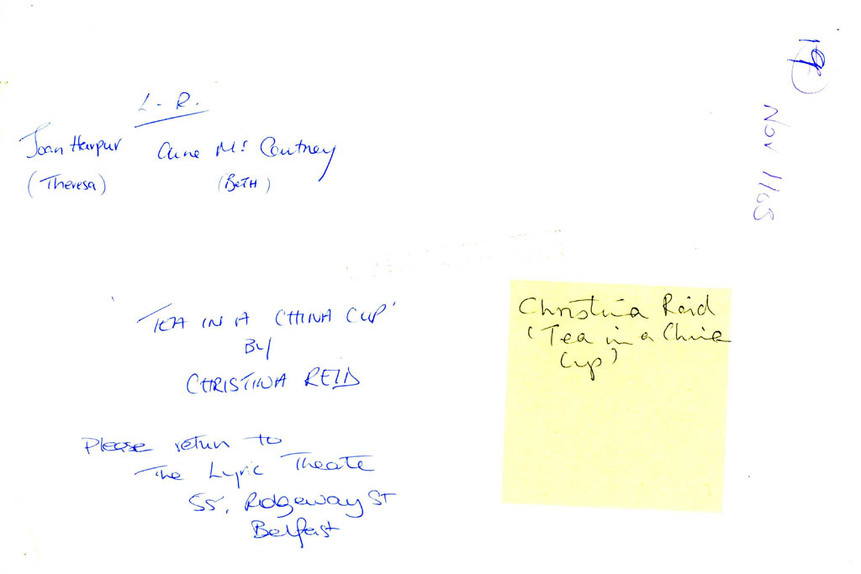 L - R.
Joan Harpur Anne Mc Coutney
(Theresa) (BETH)
'TEA IN A CHINA CUP'
By
CHRISTINA REID
Please return to
The Lyric Theate
55, Ridgeway ST
Belfast
Christina Reid
'Tea in a China
Cup'
Nov